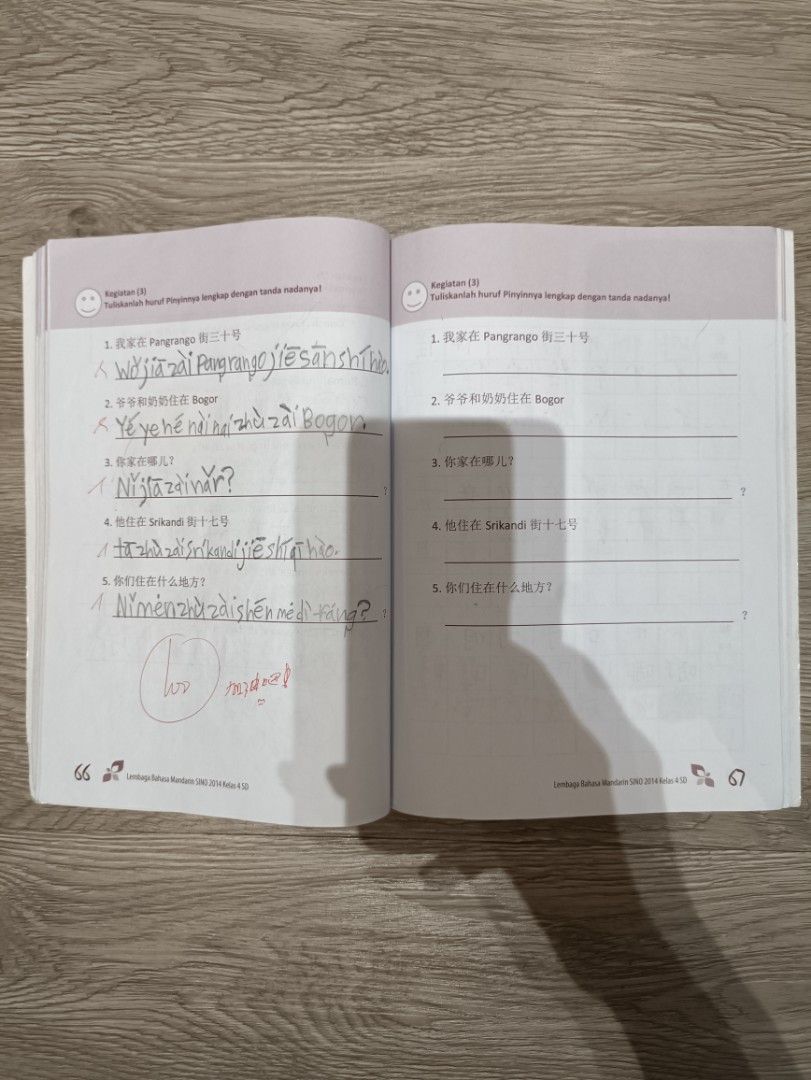 Kegiatan (3)
Tuliskanlah huruf Pinyinnya lengkap dengan tanda nadanya!
1. 我家在 Pangrango 街三十号
Wǒ jiā zài Pangrango jiē sān shí hào.
2. 爷爷和奶奶住在 Bogor
Yé ye hé nǎi nai zhù zài Bogor.
3. 你家在哪儿?
Nǐ jiā zài nǎr? ?
4. 他住在 Srikandi 街十七号
tā zhù zài Srikandi jiē shí qī hào.
5. 你们住在什么地方?
Nǐ mén zhù zài shén me dì fáng? ?
100
66
Lembaga Bahasa Mandarin SINO 2014 Kelas 4 SD
Kegiatan (3)
Tuliskanlah huruf Pinyinnya lengkap dengan tanda nadanya!
1. 我家在 Pangrango 街三十号
2. 爷爷和奶奶住在 Bogor
3. 你家在哪儿?
?
4. 他住在 Srikandi 街十七号
5. 你们住在什么地方?
?
Lembaga Bahasa Mandarin SINO 2014 Kelas 4 SD
67